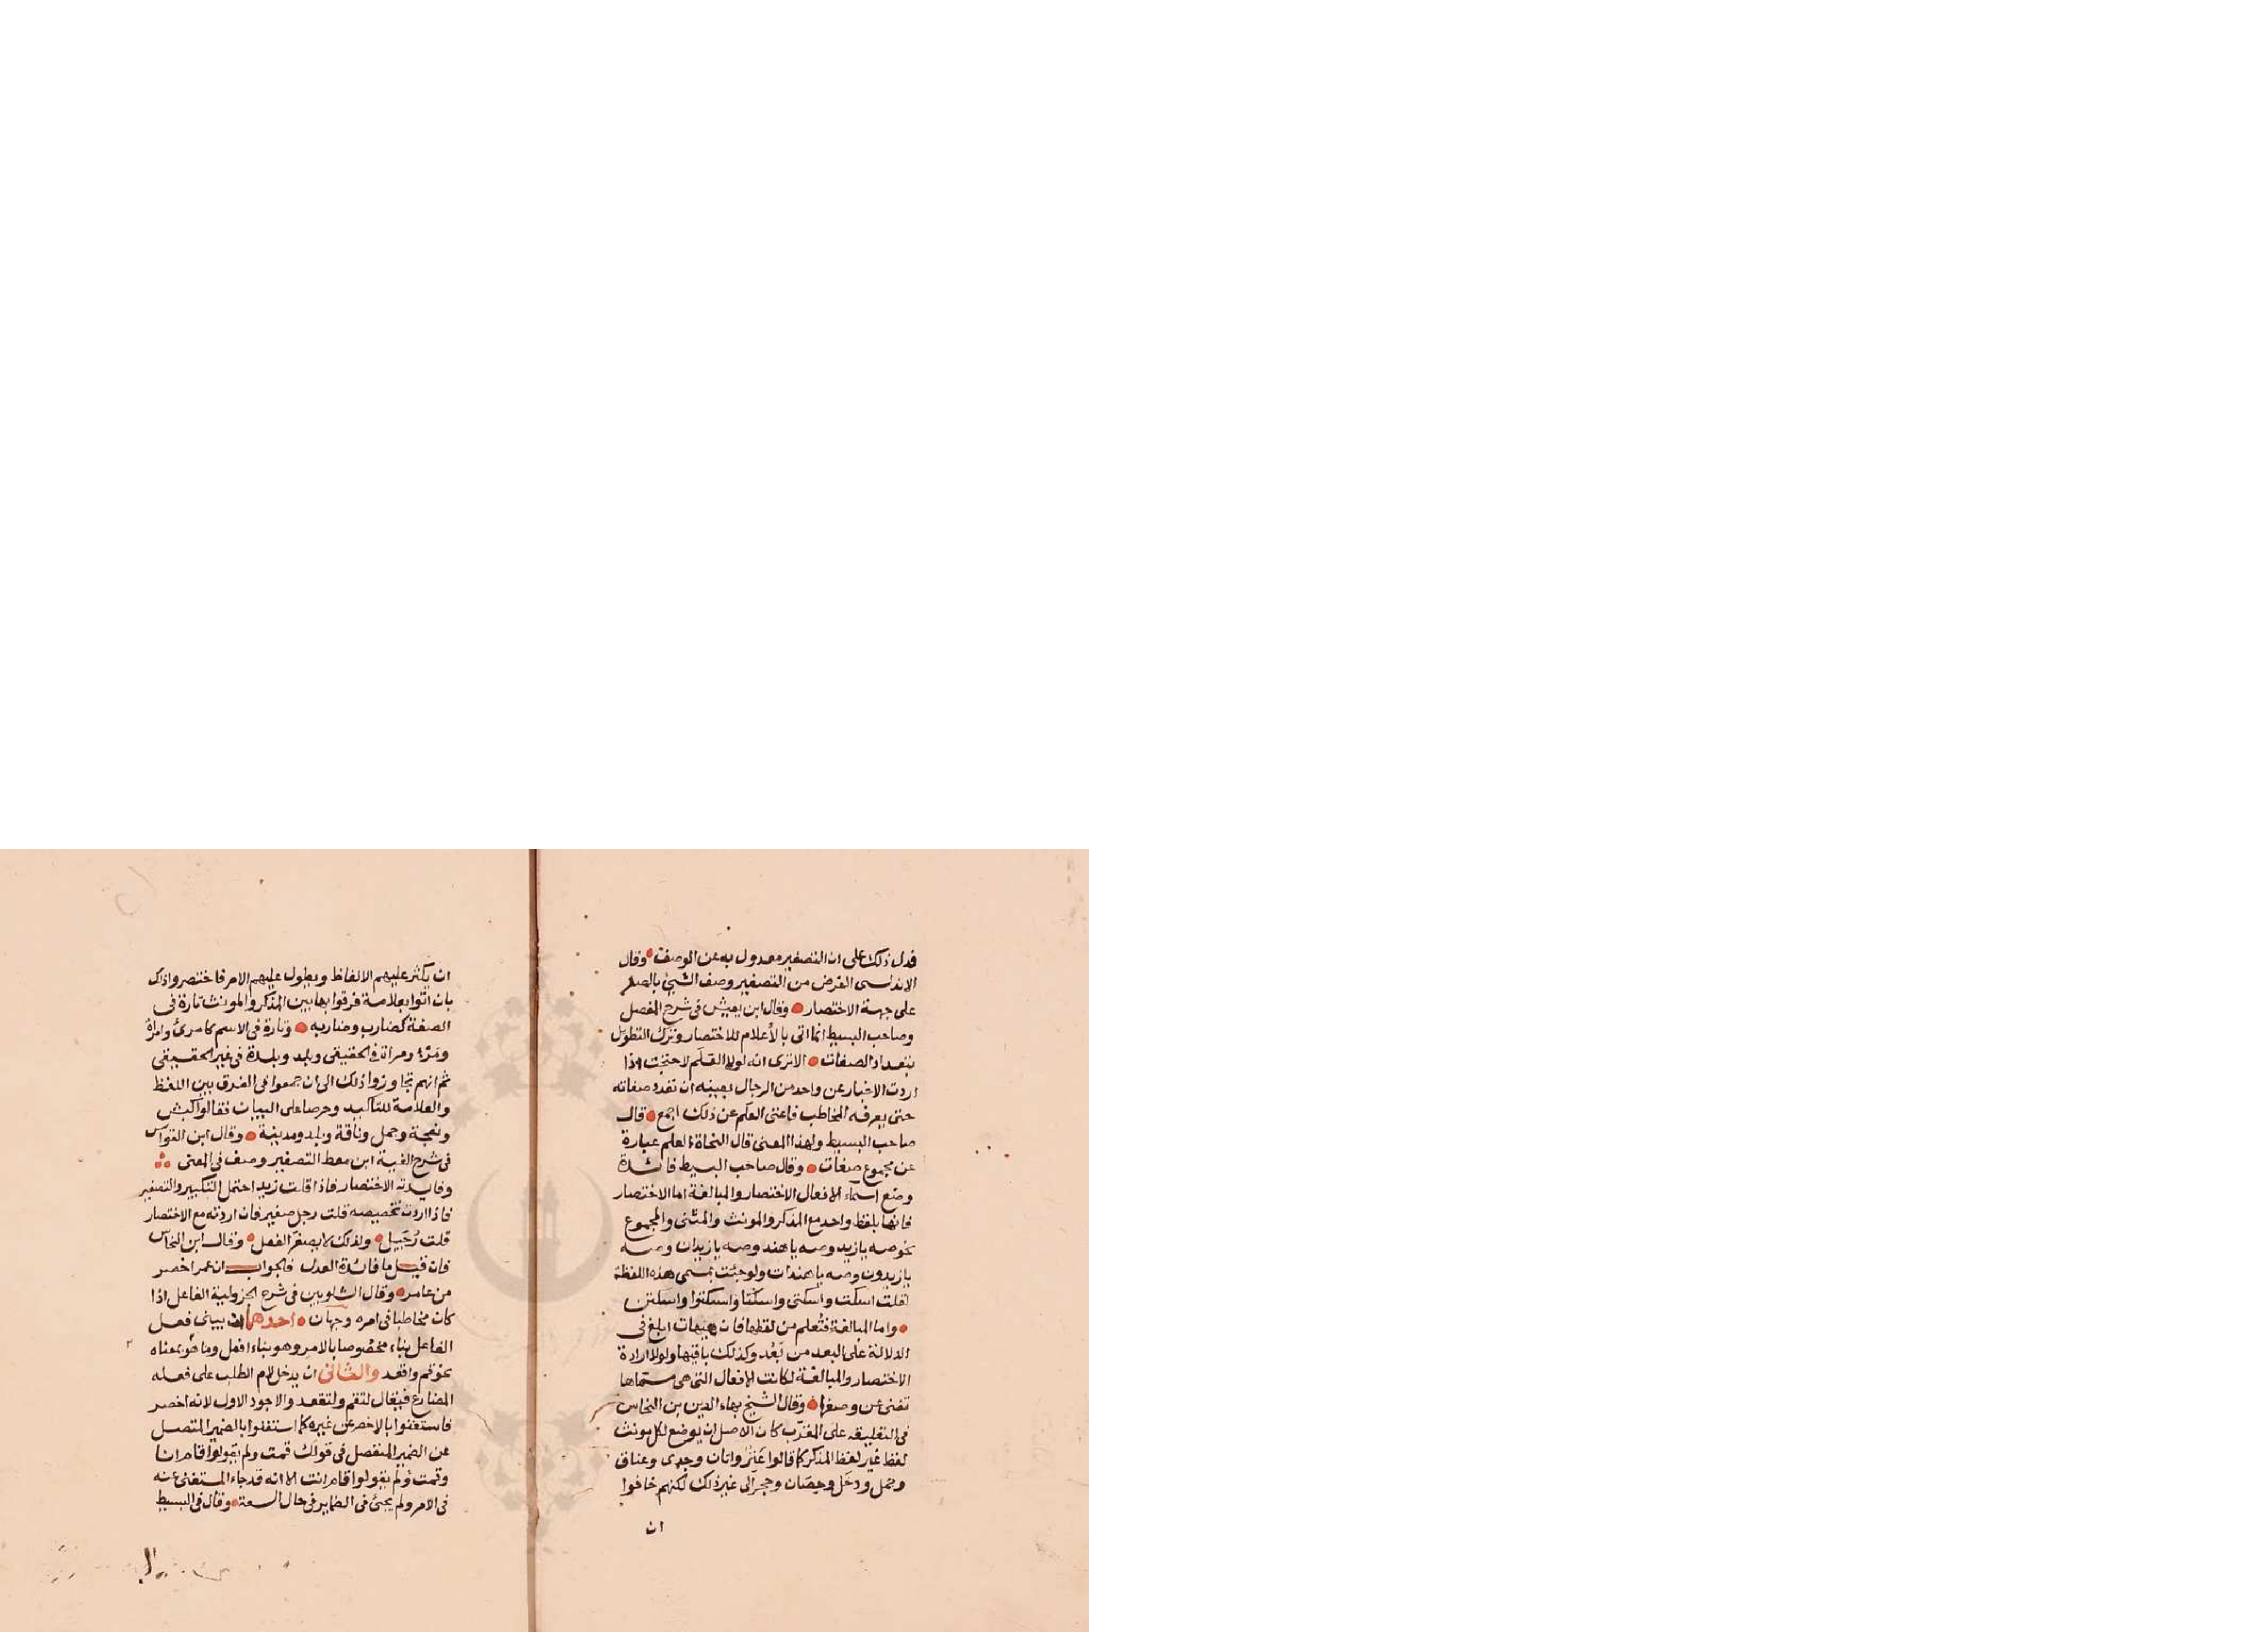 فدل ذلك على ان التصغير معدول به عن الوصف وقال
الاندلسى الغرض من التصغير وصف الشيئ بالصغر
على جهة الاختصار وقال ابن يعيش فى شرح المفصل
وصاحب البسيط انما اتى بالأعلام للاختصار وترك التطويل
بتعداد الصفات الا ترى انه لولا العلم لاحتجت اذا
اردت الاخبار عن واحد من الرجال بعينه ان تعدد صفاته
حتى يعرفه المخاطب فاغنى العلم عن ذلك اجمع قال
صاحب البسيط ولهذا المعنى قال النحاة العلم عبارة
عن مجموع صفات وقال صاحب البسيط فائدة
وضع اسماء الافعال الاختصار والمبالغة اما الاختصار
فانها بلفظ واحد مع المذكر والمونث والمثنى والمجموع
نحو صه يا زيد وصه يا هند وصه يا زيدان وصه
يا زيدون وصه يا هندات ولو جئت بمسمى هذه اللفظة
لقلت اسكت واسكتى واسكتا واسكتوا واسكتن
واما المبالغة فتعلم من لفظها فان هيهات ابلغ فى
الدلالة على البعد من بَعُد وكذلك باقيها ولولا ارادة
الاختصار والمبالغة لكانت الافعال التى هى مسماها
تغنى عن وضعها وقال الشيخ بهاء الدين بن النحاس
فى التعليقه على المقرّب كان الاصل ان يوضع لكل مونث
لفظ غير لفظ المذكر كما قالوا عَنْز واتان وجدى وعناق
وجمل ورَخِل وحِصَان وحجر الى غير ذلك لكنهم خافوا
ان
ان يكثر عليهم الالفاظ ويطول عليهم الامر فاختصروا ذلك
بان اتوا بعلامة فرقوا بها بين المذكر والمونث تارة فى
الصفة كضارب وضاربه وتارة فى الاسم كامرئ وامراة
ومَرْء ومراة فى الحقيقى وبلد وبلدة فى غير الحقيقى
ثم انهم تجاوزوا ذلك الى ان جمعوا فى الفرق بين اللفظ
والعلامة للتاكيد وحرصا على البيان فقالوا كبش
ونعجة وجمل وناقة وبلد ومدينة وقال ابن القواس
فى شرح الفية ابن معط التصغير وصف فى المعنى
وفايدته الاختصار فاذا قلت زيد احتمل التكبير والتصغير
فاذا اردت تخصيصه قلت رجل صغير فان اردته مع الاختصار
قلت رُجَيل ولذلك لا يصغر الفعل وقال ابن النحاس
فان قيل ما فائدة العدل فالجواب ان عمر اخصر
من عامر وقال الشلوبين فى شرح الجزولية الفاعل اذا
كان مخاطبا فى امره وجهان احدهما ان يبنى فعل
الفاعل بناء مخصوصا بالامر وهو بناء افعل وما هو بمعناه
نحو قم واقعد والثانى ان يدخل لام الطلب على فعله
المضارع فيقال لتقم ولتقعد والاجود الاول لانه اخصر
فاستغنوا بالاخصر عن غيره كما استغنوا بالضمير المتصل
عن الضمير المنفصل فى قولك قمت ولم يقولوا قام انا
وقمت ولم يقولوا قام انت الا انه قد جاء المستغنى عنه
فى الامر ولم يجئ فى الضماير فى حال السعة وقال فى البسيط